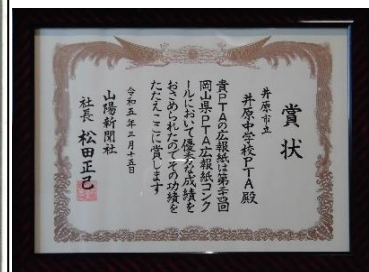 賞状
井原市立
井原中学校PTA殿
貴PTAの広報紙は第三四回
岡山県PTA広報紙コンク
ールにおいて優秀な成績を
おさめられたのでその功績を
たたえここに賞します
令和五年二月十五日
山陽新聞社
社長 松田正己